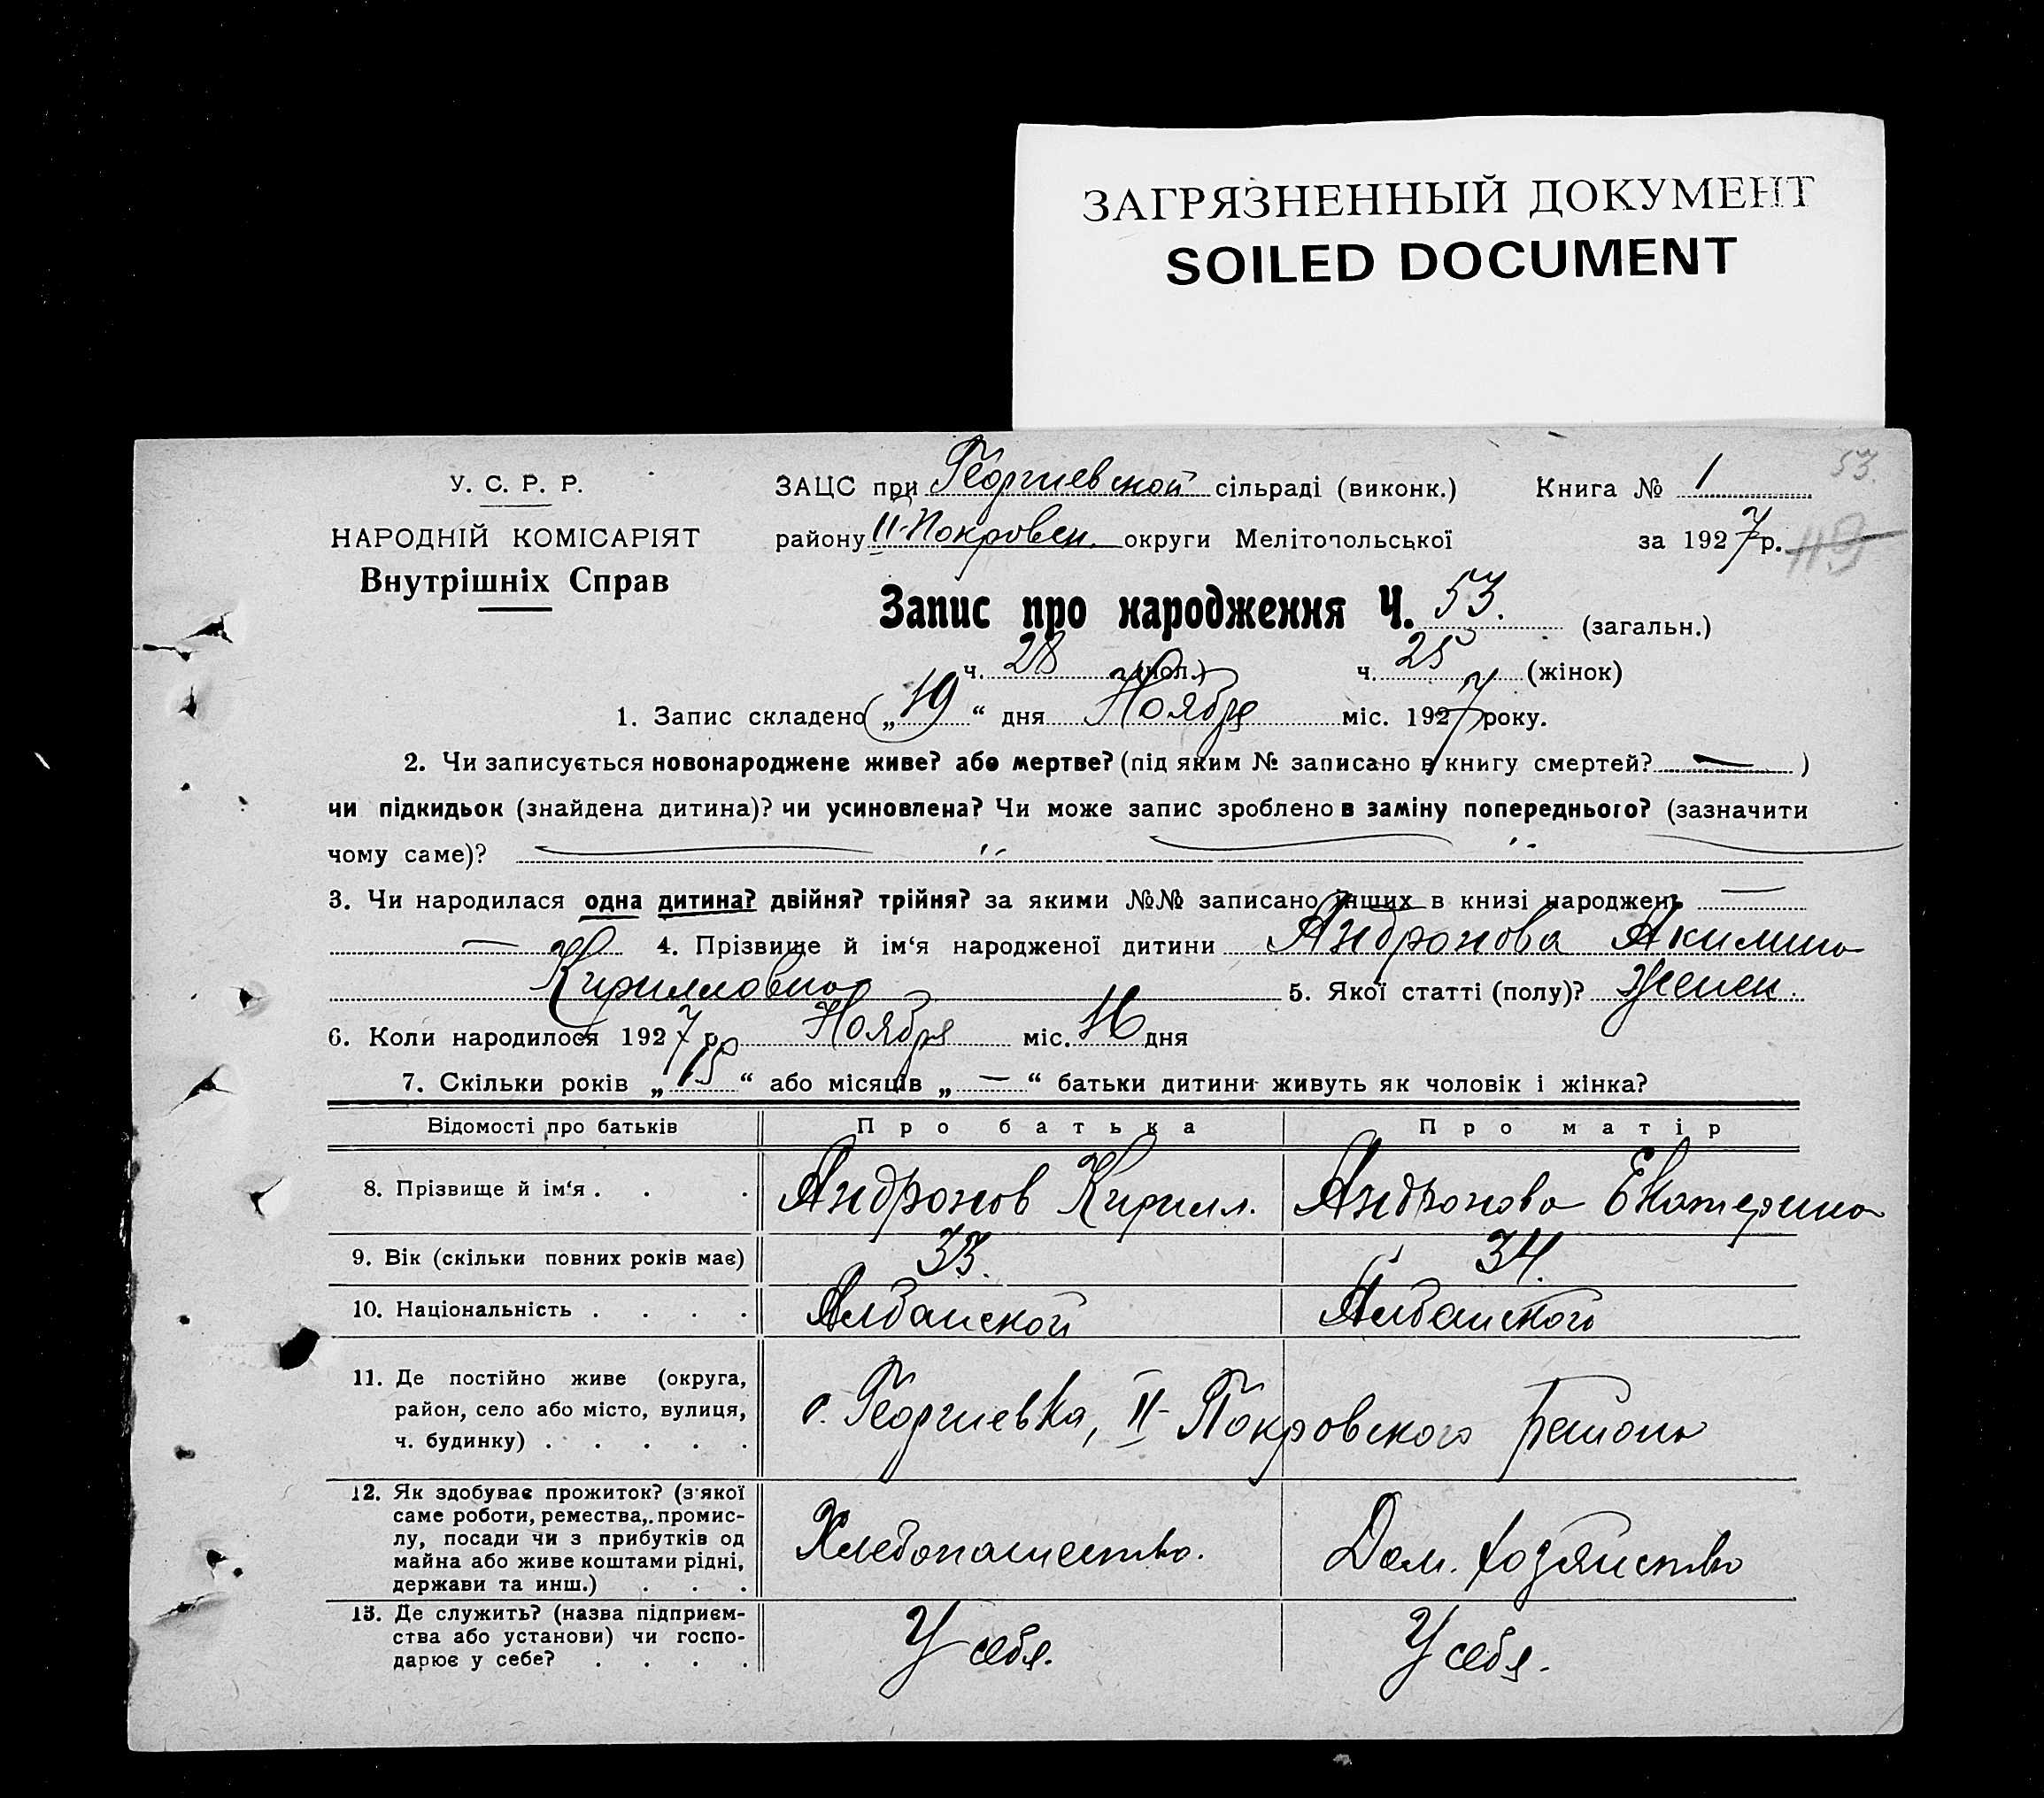 ЗАГРЯЗНЕННЫЙ ДОКУМЕНТ
SOILED DOCUMENT
53.
У. С. Р. Р.
НАРОДНІЙ КОМІСАРІЯТ
Внутрішніх Справ
ЗАЦС при Георгиевской сільраді (виконк.) Книга № 1
району II-Покровск. округи Мелітопольської за 1927 р. 119
Запис про народження Ч. 53. (загальн.)
ч. 28 (чол.) ч. 25 (жінок)
1. Запис складено „19“ дня Ноября міс. 1927 року.
2. Чи записується новонароджене живе? або мертве? (під яким № записано в книгу смертей? — )
чи підкидьок (знайдена дитина)? чи усиновлена? Чи може запис зроблено в заміну попереднього? (зазначити
чому саме)?
3. Чи народилася одна дитина? двійня? трійня? за якими №№ записано інших в книзі народжень —
— 4. Прізвище й ім‘я народженої дитини Андронова Акилина
Кирилловна 5. Якої статті (полу)? женск.
6. Коли народилося 1927 р. Ноября міс. 16 дня
7. Скільки років „15“ або місяців „—“ батьки дитини живуть як чоловік і жінка?
Відомості про батьків Про батька Про матір
8. Прізвище й ім‘я . . . Андронов Кирилл. Андронова Екатерина
9. Вік (скільки повних років має) 33. 34.
10. Національність . . . . Албанской Албанского
11. Де постійно живе (округа,
район, село або місто, вулиця,
ч. будинку) . . . . .
с. Георгиевка, II-Покровского района
12. Як здобуває прожиток? (з якої
саме роботи, ремества, промис-
лу, посади чи з прибутків од
майна або живе коштами рідні,
держави та инш.) . . .
Хлебопашество. Дом. хозяйство
13. Де служить? (назва підприєм-
ства або установи) чи госпо-
дарює у себе? . . . .
У себя. У себя.